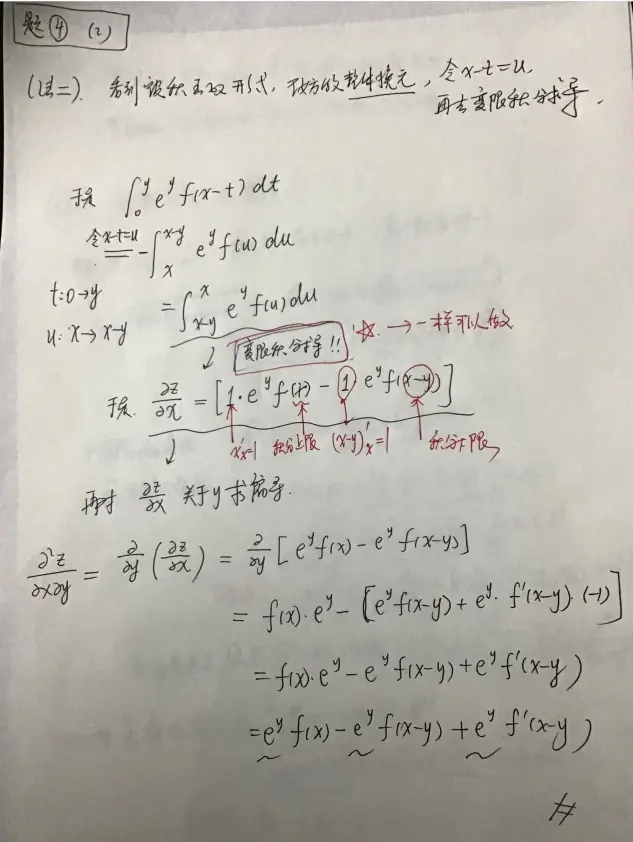 题④ (2)
(法二). 看到被积函数形式, 不妨做整体换元, 令x-t=u,
再去变限积分求导.
于是 ∫₀^y e^y f(x-t) dt
令x-t=u == -∫_x^{x-y} e^y f(u) du
t:0→y = ∫_{x-y}^x e^y f(u) du
u: x→x-y
变限积分求导!! ☆ → 一样可以做
于是. ∂z/∂x = [1·e^y f(x) - 1·e^y f(x-y)]
x'ₓ=1 积分上限 (x-y)'ₓ=1 积分下限
再对 ∂z/∂x 关于y求偏导.
∂²z/∂x∂y = ∂/∂y (∂z/∂x) = ∂/∂y [e^y f(x) - e^y f(x-y)]
= f(x)·e^y - [e^y f(x-y) + e^y· f'(x-y)·(-1)]
= f(x)·e^y - e^y f(x-y) + e^y f'(x-y)
= e^y f(x) - e^y f(x-y) + e^y f'(x-y)
#